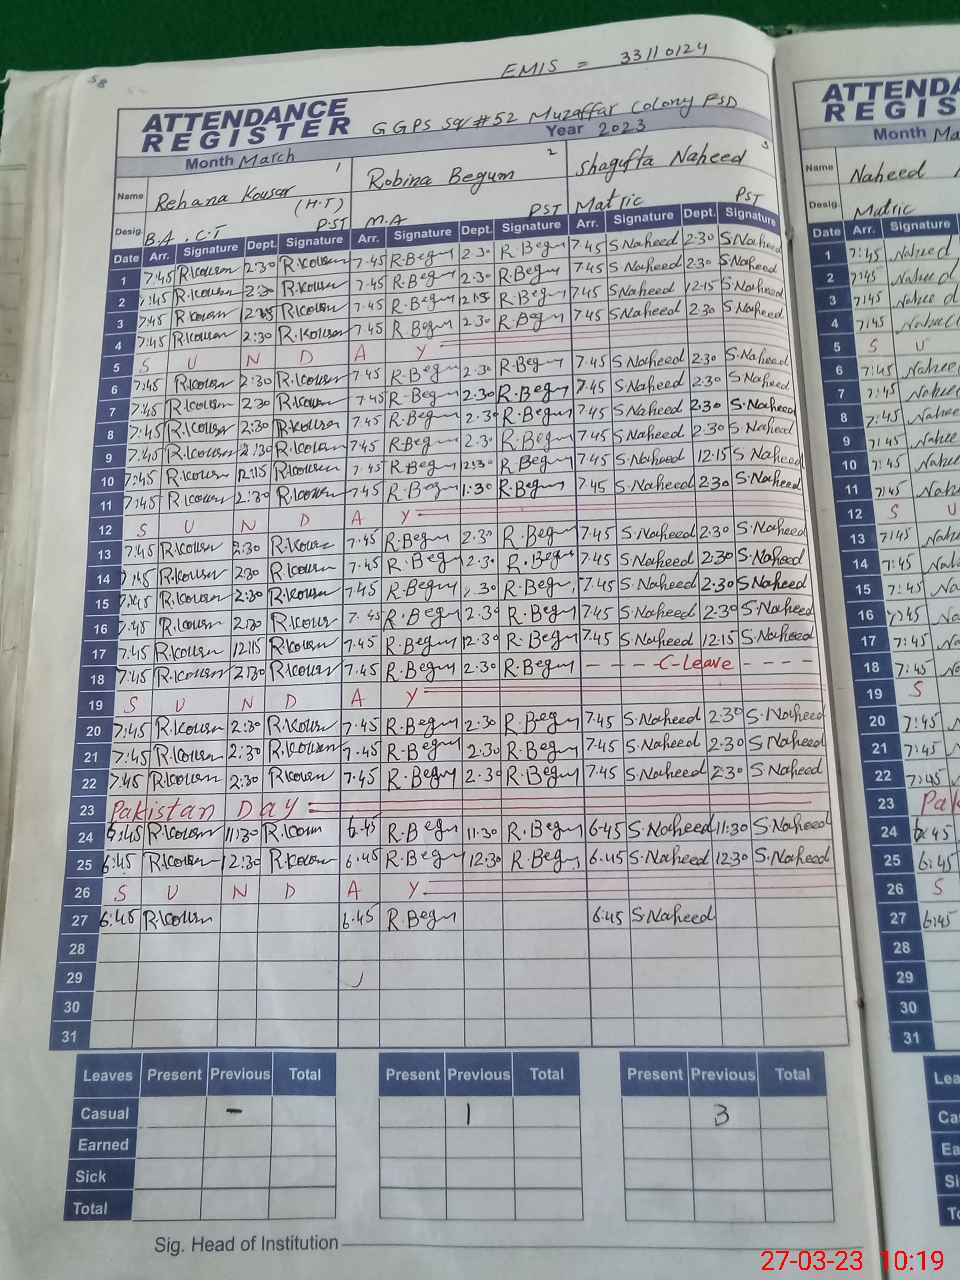 58
EMIS = 33110124
ATTENDANCE REGISTER GGPS 59/#52 Muzaffar Colony FSD
Month March Year 2023
Name Rehana Kousar (H.T) 1 Robina Begum 2 Shagufta Naheed 3
Desig. B.A . C.T PST M.A PST Matric PST
Date Arr. Signature Dept. Signature Arr. Signature Dept. Signature Arr. Signature Dept. Signature
1 7:45 R.kousar 2:30 R.kousar 7.45 R.Begum 2.30 R.Begum 7.45 S.Naheed 2:30 S.Naheed
2 7:45 R.kousar 2:30 R.kousar 7.45 R.Begum 2.30 R.Begum 7.45 S.Naheed 2:30 S.Naheed
3 7:45 R.kousar R.kousar 7.45 R.Begum R.Begum 7.45 S.Naheed 12:15 S.Naheed
4 7:45 R.kousar 2:30 R.kousar 7.45 R.Begum 2.30 R.Begum 7.45 S.Naheed 2:30 S.Naheed
5 S U N D A Y
6 7:45 R.kousar 2:30 R.kousar 7.45 R.Begum 2.30 R.Begum 7.45 S.Naheed 2:30 S.Naheed
7 7:45 R.kousar 2:30 R.kousar 7.45 R.Begum 2.30 R.Begum 7.45 S.Naheed 2:30 S.Naheed
8 7:45 R.kousar 2:30 R.kousar 7.45 R.Begum 2.30 R.Begum 7.45 S.Naheed 2:30 S.Naheed
9 7:45 R.kousar 2:30 R.kousar 7.45 R.Begum 2.30 R.Begum 7.45 S.Naheed 2:30 S.Naheed
10 7:45 R.kousar 12:15 R.kousar 7.45 R.Begum R.Begum 7.45 S.Naheed 12:15 S.Naheed
11 7:45 R.kousar 2:30 R.kousar 7.45 R.Begum R.Begum 7.45 S.Naheed 2:30 S.Naheed
12 S U N D A Y
13 7:45 R.kousar 2:30 R.kousar 7.45 R.Begum 2.30 R.Begum 7.45 S.Naheed 2:30 S.Naheed
14 7:45 R.kousar 2:30 R.kousar 7.45 R.Begum 2.30 R.Begum 7.45 S.Naheed 2:30 S.Naheed
15 7:45 R.kousar 2:30 R.kousar 7.45 R.Begum R.Begum 7.45 S.Naheed 2:30 S.Naheed
16 7:45 R.kousar 2:30 R.kousar 7.45 R.Begum 2.30 R.Begum 7.45 S.Naheed 2:30 S.Naheed
17 7:45 R.kousar 12:15 R.kousar 7.45 R.Begum 12.30 R.Begum 7.45 S.Naheed 12:15 S.Naheed
18 7:45 R.kousar 2:30 R.kousar 7.45 R.Begum 2.30 R.Begum - - - - C-Leave - - - -
19 S U N D A Y
20 7:45 R.kousar 2:30 R.kousar 7.45 R.Begum 2.30 R.Begum 7.45 S.Naheed 2:30 S.Naheed
21 7:45 R.kousar 2:30 R.kousar 7.45 R.Begum 2.30 R.Begum 7.45 S.Naheed 2:30 S.Naheed
22 7:45 R.kousar 2:30 R.kousar 7.45 R.Begum 2.30 R.Begum 7.45 S.Naheed 2:30 S.Naheed
23 Pakistan Day
24 6:45 R.kousar 11:30 R.kousar 6.45 R.Begum 11:30 R.Begum 6.45 S.Naheed 11:30 S.Naheed
25 6:45 R.kousar 12:30 R.kousar 6.45 R.Begum 12:30 R.Begum 6.45 S.Naheed 12:30 S.Naheed
26 S U N D A Y
27 6:45 R.kousar 6.45 R.Begum 6:45 S.Naheed
28
29
30
31
Leaves Present Previous Total Present Previous Total Present Previous Total
Casual - 1 3
Earned
Sick
Total
Sig. Head of Institution
ATTENDA
REGIS
Month Ma
Name Naheed
Desig. Matric
Date Arr. Signature
1 7:45 Naheed
2 7:45 Naheed
3 7:45 Naheed
4 7:45 Naheed
5 S U
6 7:45 Naheed
7 7:45 Naheed
8 7:45 Naheed
9 7:45 Naheed
10 7:45 Naheed
11 7:45 Nah
12 S U
13 7:45 Nahe
14 7:45 Nah
15 7:45 Na
16 7:45 Na
17 7:45 Na
18 7:45 N
19 S
20 7:45
21 7:45
22 7:45
23 Pak
24 6:45
25 6:45
26 S
27 6:45
28
29
30
31
Lea
Ca
Ea
Si
To
27-03-23 10:19